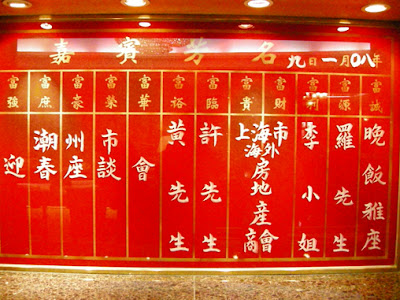 嘉賓芳名
九日一月08年
富誠
晚飯雅座
富源
羅先生
富利
李小姐
富財
富貴
上海市
海外
房地產商會
富臨
許先生
富裕
黃先生
富華
富榮
富豪
富庶
富強
潮州市
迎春座談會